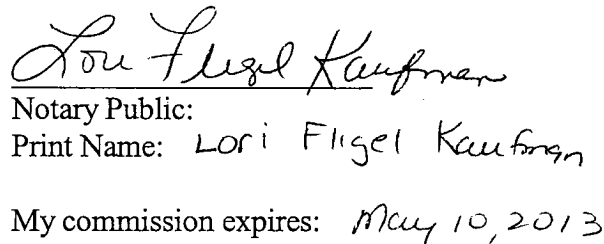 Lori Fligel Kaufman
Notary Public:
Print Name: Lori Fligel Kaufman
My commission expires: May 10, 2013